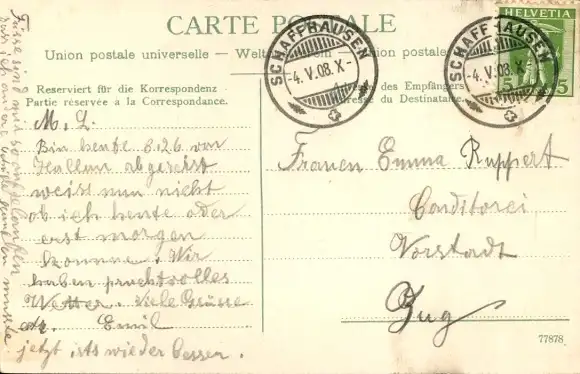 CARTE POSTALE
Union postale universelle — Weltpostverein — Unione postale
SCHAFFHAUSEN
-4.V.08.X-
SCHAFFHAUSEN
-4.V.08.X-
HELVETIA
5
5
Reserviert für die Korrespondenz
Partie réservée à la Correspondance.
des Empfängers
Adresse du Destinataire.
M. L.
Bin heute 8.26 von
Hallau abgereist
weiss nun nicht
ob ich heute oder
erst morgen
komme. Wir
haben prachtvolles
Wetter. Viele Grüsse
Emil
jetzt ists wieder besser.
mir
dass ich
musste
Frauen Emma Ruppert
Conditorei
Vorstadt
Zug
77878